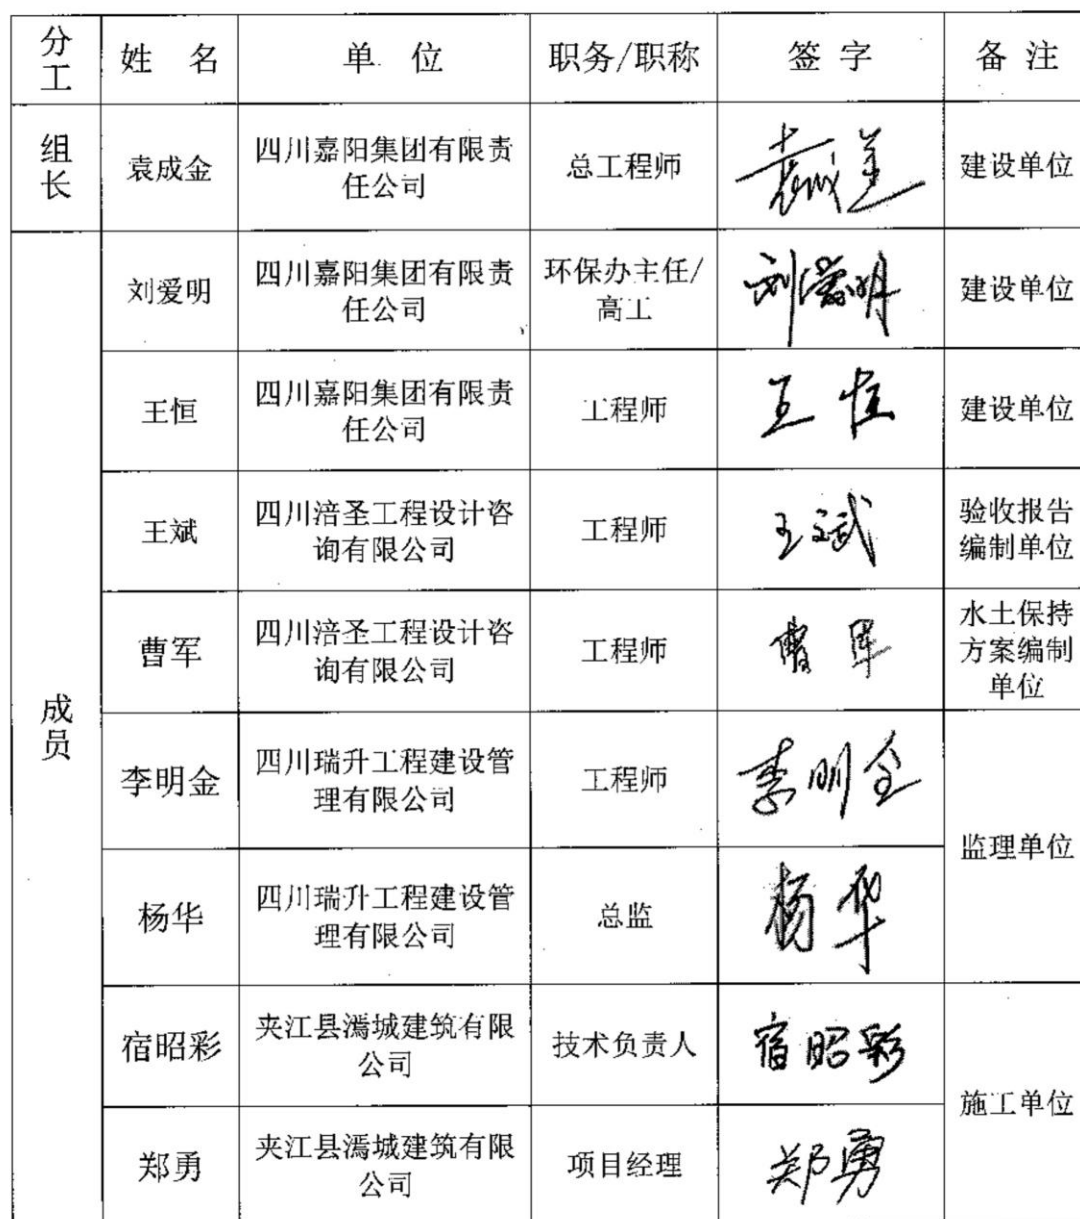 分工 姓 名 单 位 职务/职称 签 字 备 注
组长 袁成金 四川嘉阳集团有限责任公司 总工程师 袁成金 建设单位
成员 刘爱明 四川嘉阳集团有限责任公司 环保办主任/高工 刘爱明 建设单位
王恒 四川嘉阳集团有限责任公司 工程师 王恒 建设单位
王斌 四川涪圣工程设计咨询有限公司 工程师 王斌 验收报告编制单位
曹军 四川涪圣工程设计咨询有限公司 工程师 曹军 水土保持方案编制单位
李明金 四川瑞升工程建设管理有限公司 工程师 李明金 监理单位
杨华 四川瑞升工程建设管理有限公司 总监 杨华
宿昭彩 夹江县漹城建筑有限公司 技术负责人 宿昭彩 施工单位
郑勇 夹江县漹城建筑有限公司 项目经理 郑勇